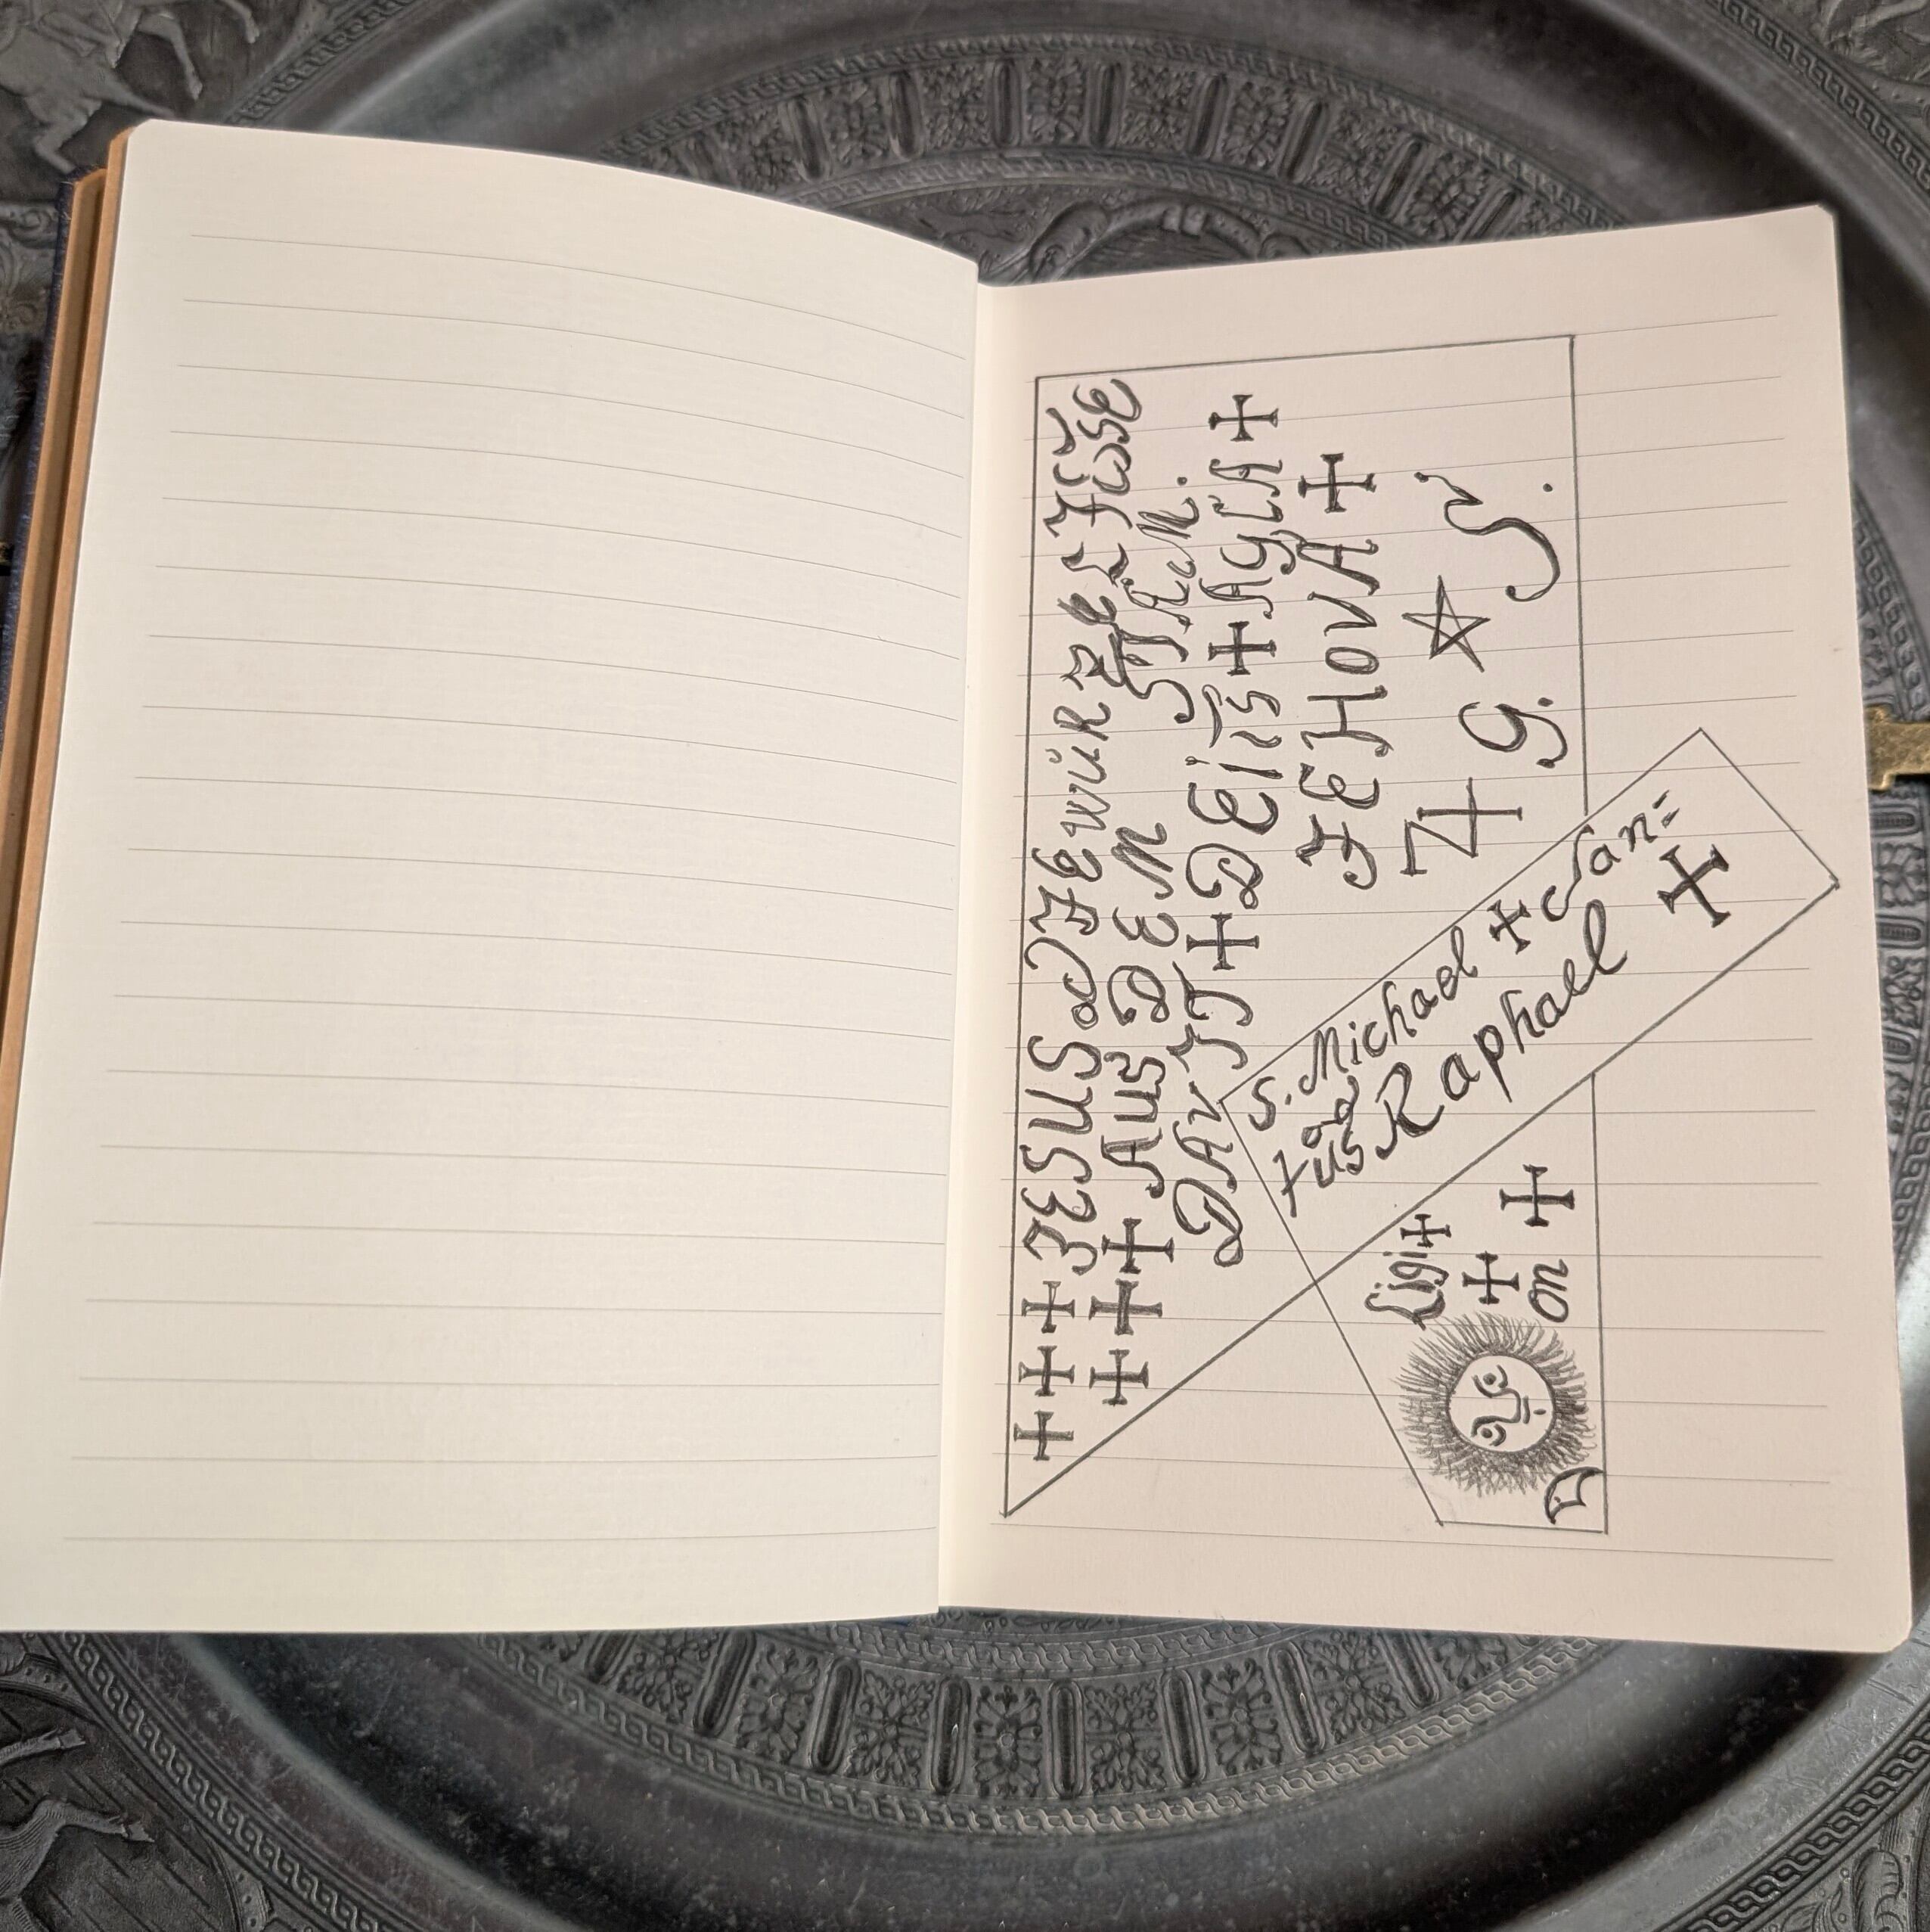 +++ JESUS DIE WÜRZEL JESSE
+++ AUS DEM STAM.
DAVIT + DEIIS + AGLA +
JEHOVA +
♃ ☆
G. S.
S. Michael + San=
Raphael +
Ligi +
+
on +